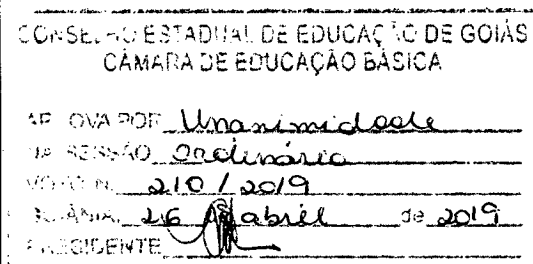 CONSELHO ESTADUAL DE EDUCAÇÃO DE GOIÁS
CÂMARA DE EDUCAÇÃO BÁSICA
APROVA POR Unanimidade
NA SESSÃO Ordinária
VOTO N. 210 / 2019
GOIÂNIA, 26 abril de 2019
PRESIDENTE